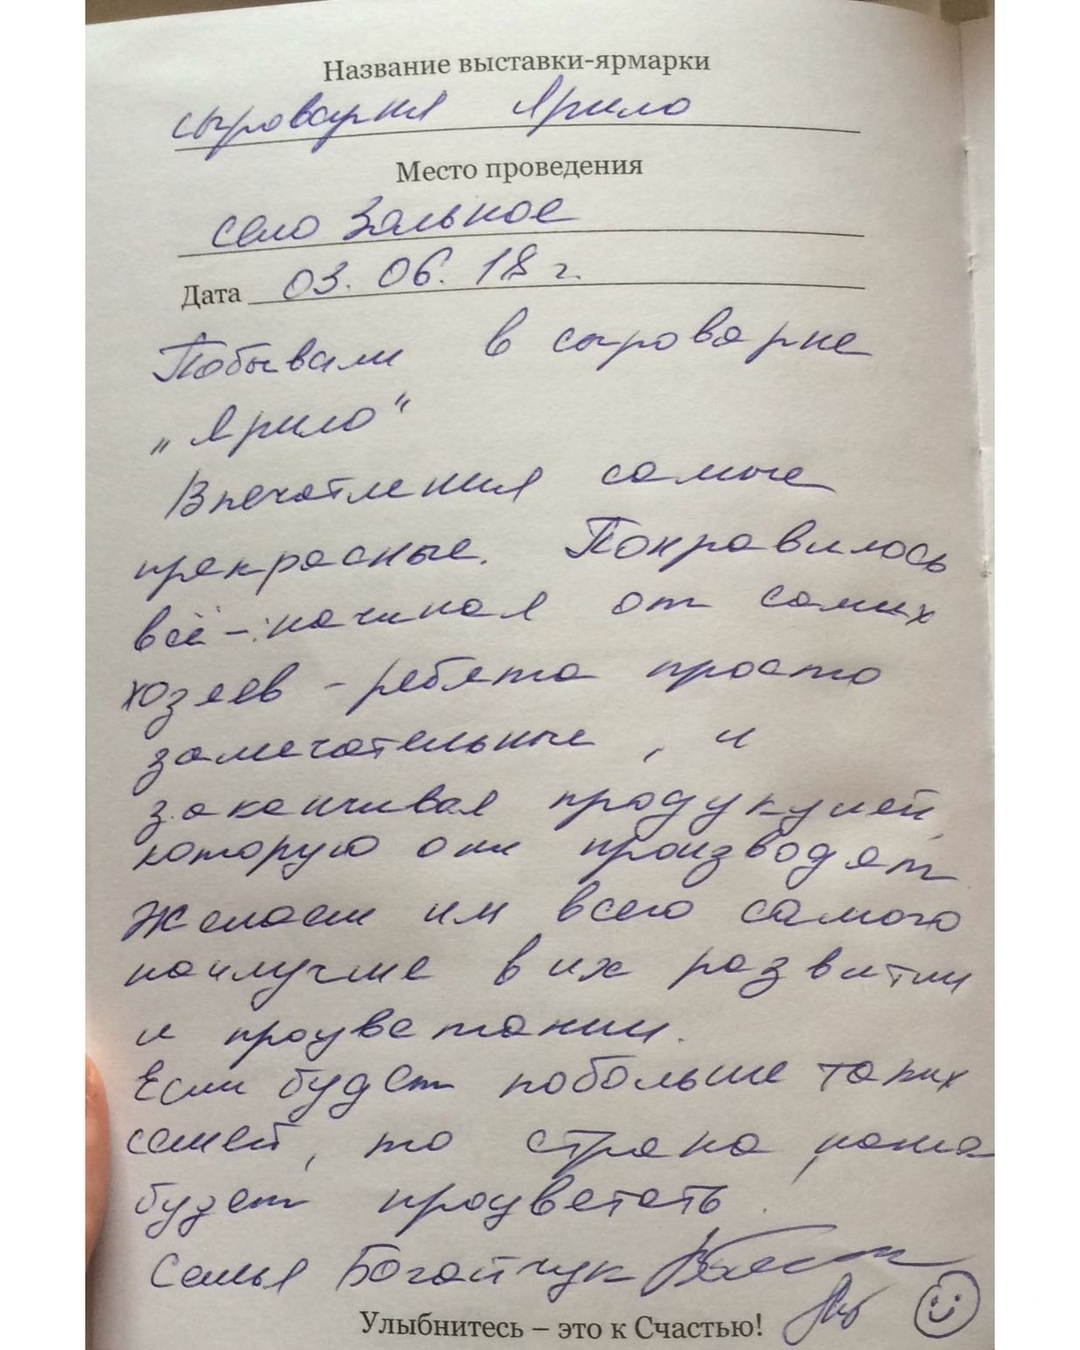 Название выставки-ярмарки
сыроварня Ярило
Место проведения
село Зольное
Дата 03.06.18 г.
Побывали в сыроварне
„Ярило“
Впечатления самые
прекрасные. Понравилось
всё – начиная от самих
хозяев – ребята просто
замечательные, и
заканчивая продукцией,
которую они производят
Желаем им всего самого
наилучше в их развитии
и процветании.
Если будет побольше таких
семей, то страна наша
будет процветать.
Семья Богайчук
Улыбнитесь – это к Счастью!